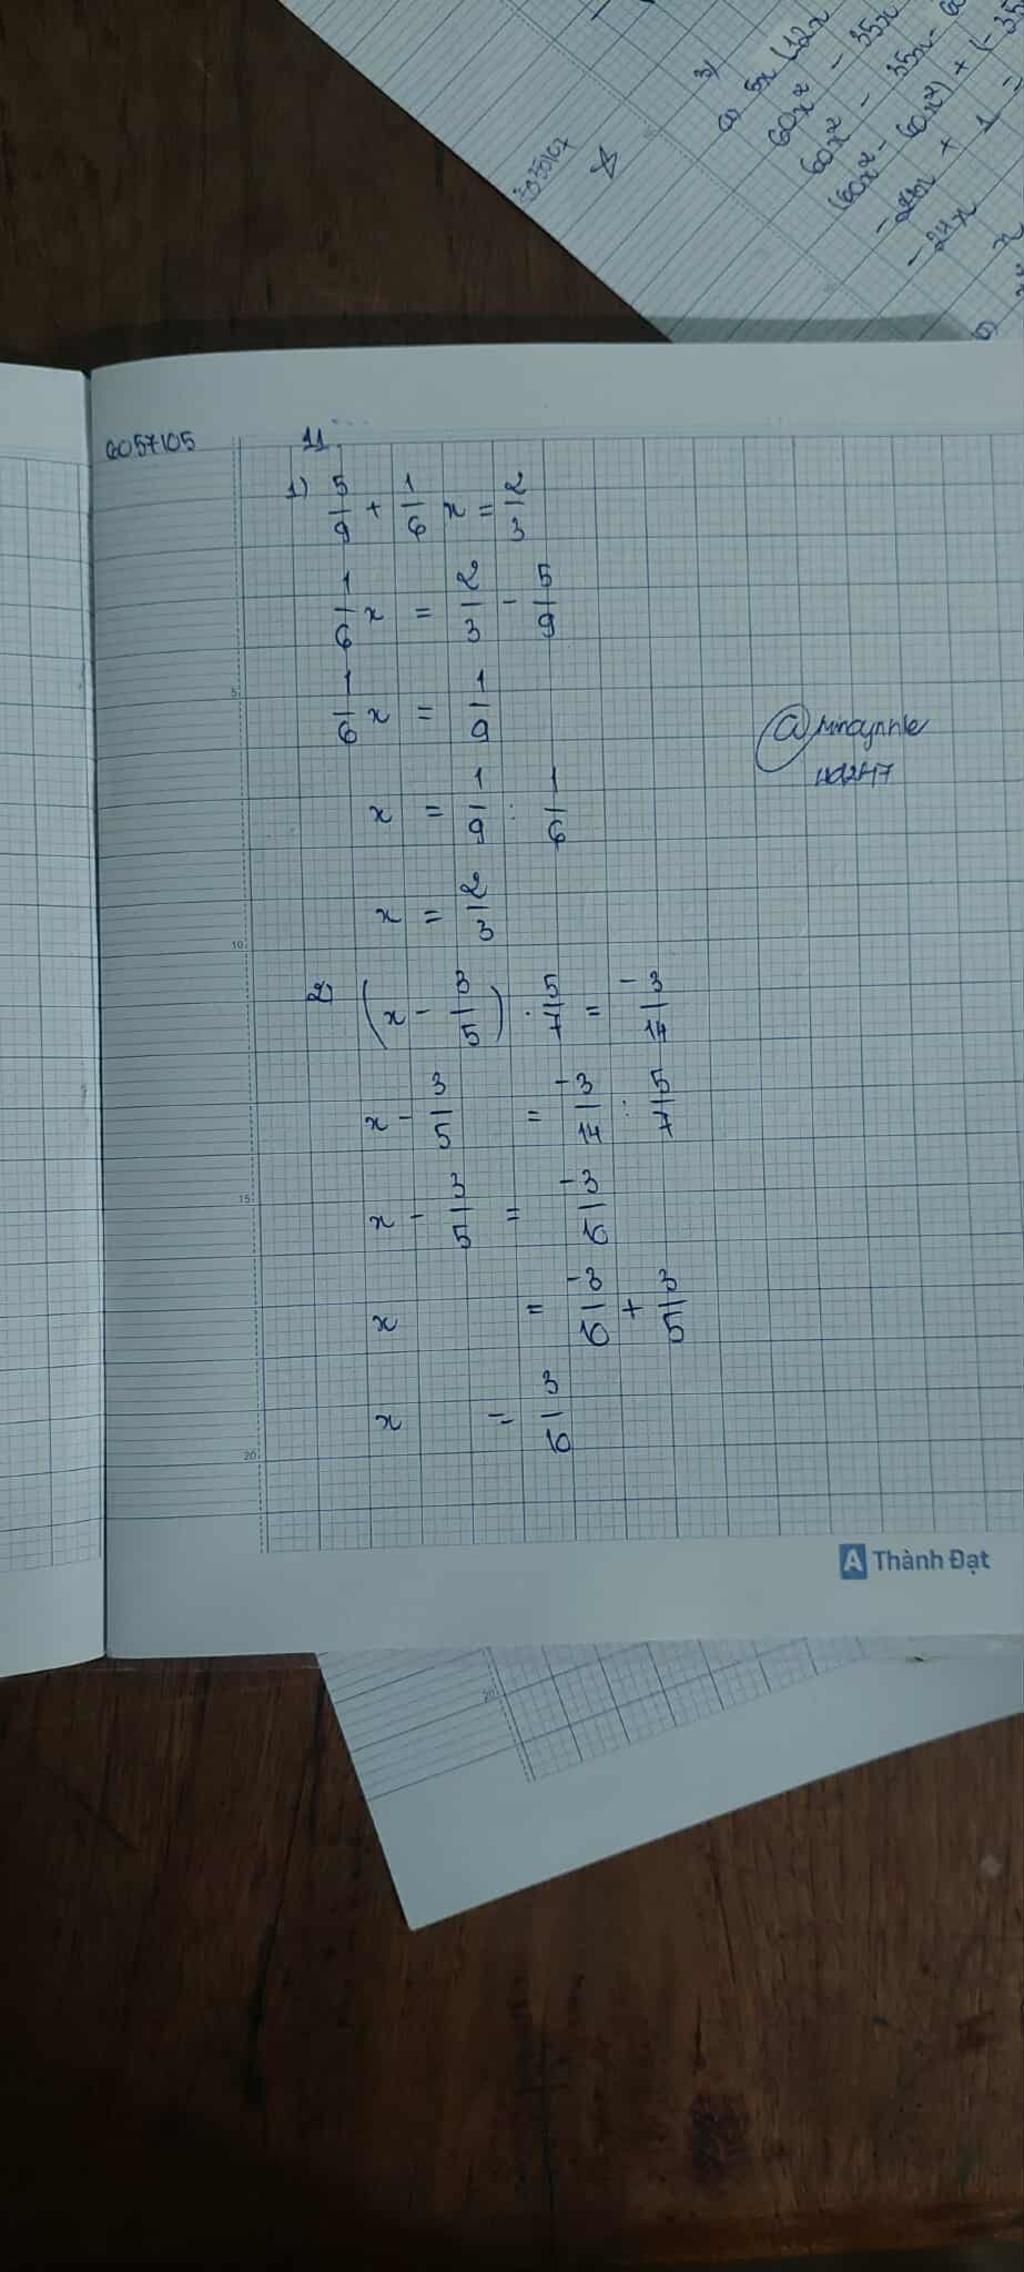 3)
a) 5x (12x
60x² - 35x
60x² - 35x - 60
(60x² - 60x²) + (-35
- 24x + 1 =
- 24x
x
b)
6057105
11.
1) 5/9 + 1/6 x = 2/3
1/6 x = 2/3 - 5/9
1/6 x = 1/9
x = 1/9 : 1/6
x = 2/3
2) (x - 3/5) . 5/7 = -3/14
x - 3/5 = -3/14 : 5/7
x - 3/5 = -3/10
x = -3/10 + 3/5
x = 3/10
5
10
15
20
A Thành Đạt
20